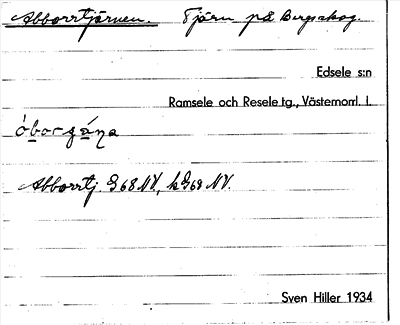 Abborrtjärnen. Tjärn på Bergsskog.
Edsele s:n
Ramsele och Resele tg., Västernorrl. l.
Abborrtj. G 68 NV, hG68 NV.
Sven Hiller 1934